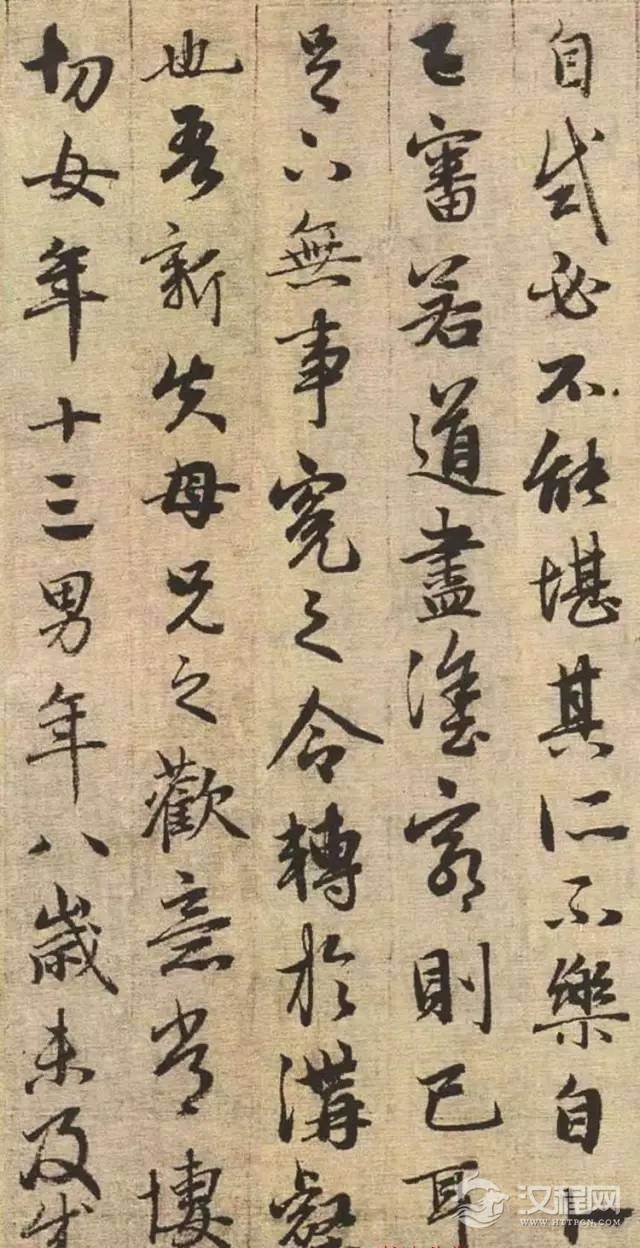 自試必不能堪其所不樂自卜
已審若道盡塗窮則已耳
足下無事冤之令轉於溝壑
也吾新失母兄之歡意常悽
切女年十三男年八歲未及成
汉程网
WWW.HTTPCN.COM